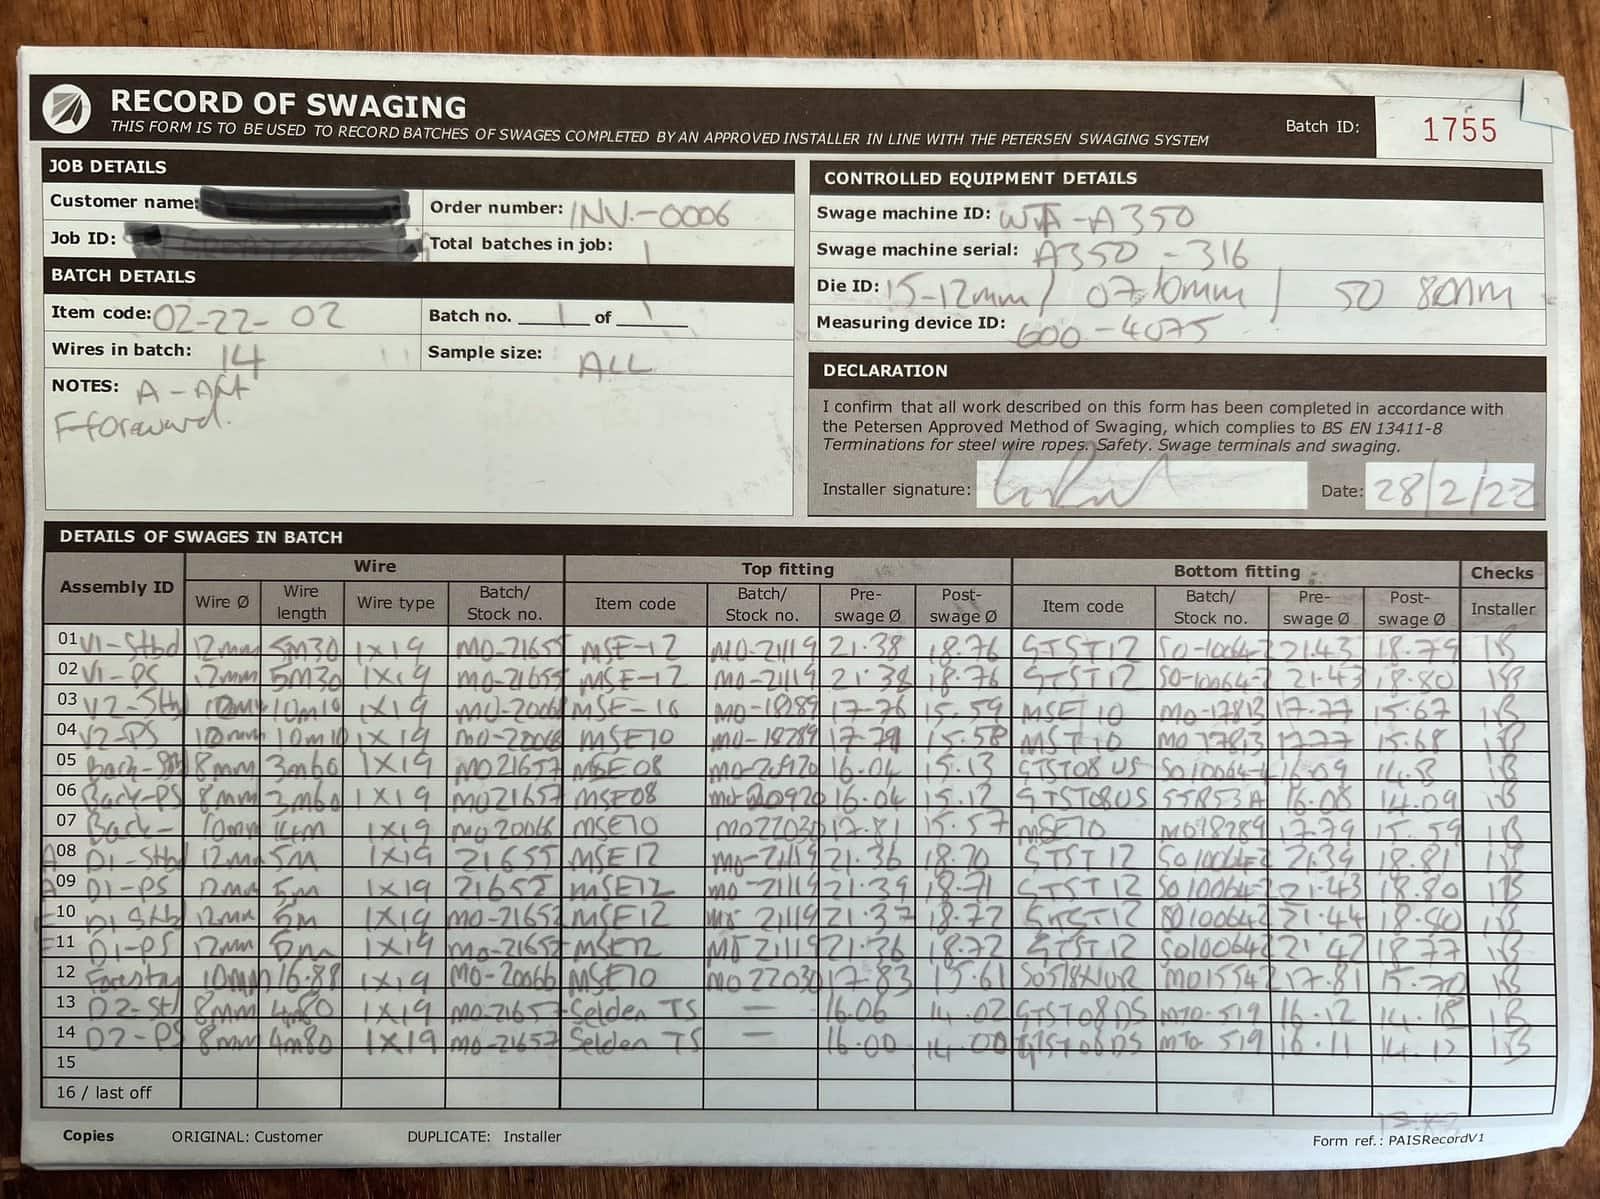 RECORD OF SWAGING
THIS FORM IS TO BE USED TO RECORD BATCHES OF SWAGES COMPLETED BY AN APPROVED INSTALLER IN LINE WITH THE PETERSEN SWAGING SYSTEM
Batch ID: 1755
JOB DETAILS
Customer name:
Order number: INV.-0006
Job ID:
Total batches in job: 1
BATCH DETAILS
Item code: 02-22-02
Batch no. 1 of 1
Wires in batch: 14
Sample size: ALL
NOTES: A-Aft
F-forward.
CONTROLLED EQUIPMENT DETAILS
Swage machine ID: WTA-A350
Swage machine serial: A350-316
Die ID: 15-12mm / 07-10mm / 50 80mm
Measuring device ID: 600-4075
DECLARATION
I confirm that all work described on this form has been completed in accordance with
the Petersen Approved Method of Swaging, which complies to BS EN 13411-8
Terminations for steel wire ropes. Safety. Swage terminals and swaging.
Installer signature:
Date: 28/2/22
DETAILS OF SWAGES IN BATCH
Assembly ID Wire Top fitting Bottom fitting Checks
Wire Ø Wire length Wire type Batch/ Stock no. Item code Batch/ Stock no. Pre-swage Ø Post-swage Ø Item code Batch/ Stock no. Pre-swage Ø Post-swage Ø Installer
01 V1-Stbd 12mm 5m30 1X19 MO-21655 MSE-12 MO-21119 21.38 18.76 GTST12 SO-10064-2 21.43 18.79 IB
02 V1-PS 12mm 5m30 1X19 MO-21655 MSE-12 MO-21119 21.38 18.76 GTST12 SO-10064-2 21.43 18.80 IB
03 V2-Stb 10mm 10m10 1X19 MO-20066 MSE-10 MO-18289 17.76 15.59 MSE10 MO-17813 17.77 15.67 IB
04 V2-PS 10mm 10m10 1X19 MO-20066 MSE10 MO-18289 17.79 15.58 MST10 MO17813 17.77 15.68 IB
05 Back-Stb 8mm 3m60 1X19 MO21657 MSE08 MO-20920 16.04 15.13 GTST08US 16.09 IB
06 Back-PS 8mm 3m60 1X19 MO21657 MSE08 MO-20920 16.04 15.12 GTST08US 55853A 16.08 14.09 IB
07 Back- 10mm 1X19 MO20066 MSE10 MO22030 17.81 15.57 MSE10 MO18289 17.79 15.59 IB
A 08 D1-Stbd 12mm 5m 1X19 21655 MSE12 MO-21119 21.36 18.70 GTST12 SO10064-2 21.39 18.81 IB
A 09 D1-PS 12mm 5m 1X19 21655 MSE12 MO-21119 21.39 18.71 GTST12 SO10064-2 21.43 18.80 IB
F 10 D1 Stb 12mm 5m 1X19 MO-21657 MSE12 21119 21.37 18.77 GTST12 SO10064-2 21.44 18.80 IB
F 11 D1-PS 12mm 5m 1X19 MO-21657 MSE12 21119 21.36 18.72 GTST12 SO10064-2 21.42 18.77 IB
12 Forestay 10mm 16.88 1X19 MO-20066 MSE10 MO22030 17.83 15.61 MO15542 17.81 15.70 IB
13 D2-St 8mm 4m80 1X19 MO-21657 Selden TS — 16.06 14.02 GTST08DS MTO-519 16.12 14.18 IB
14 D2-PS 8mm 4m80 1X19 MO-21657 Selden TS — 16.00 14.00 GTST08DS MTO 519 16.11 14.12 IB
15
16 / last off
Copies ORIGINAL: Customer DUPLICATE: Installer Form ref.: PAISRecordV1